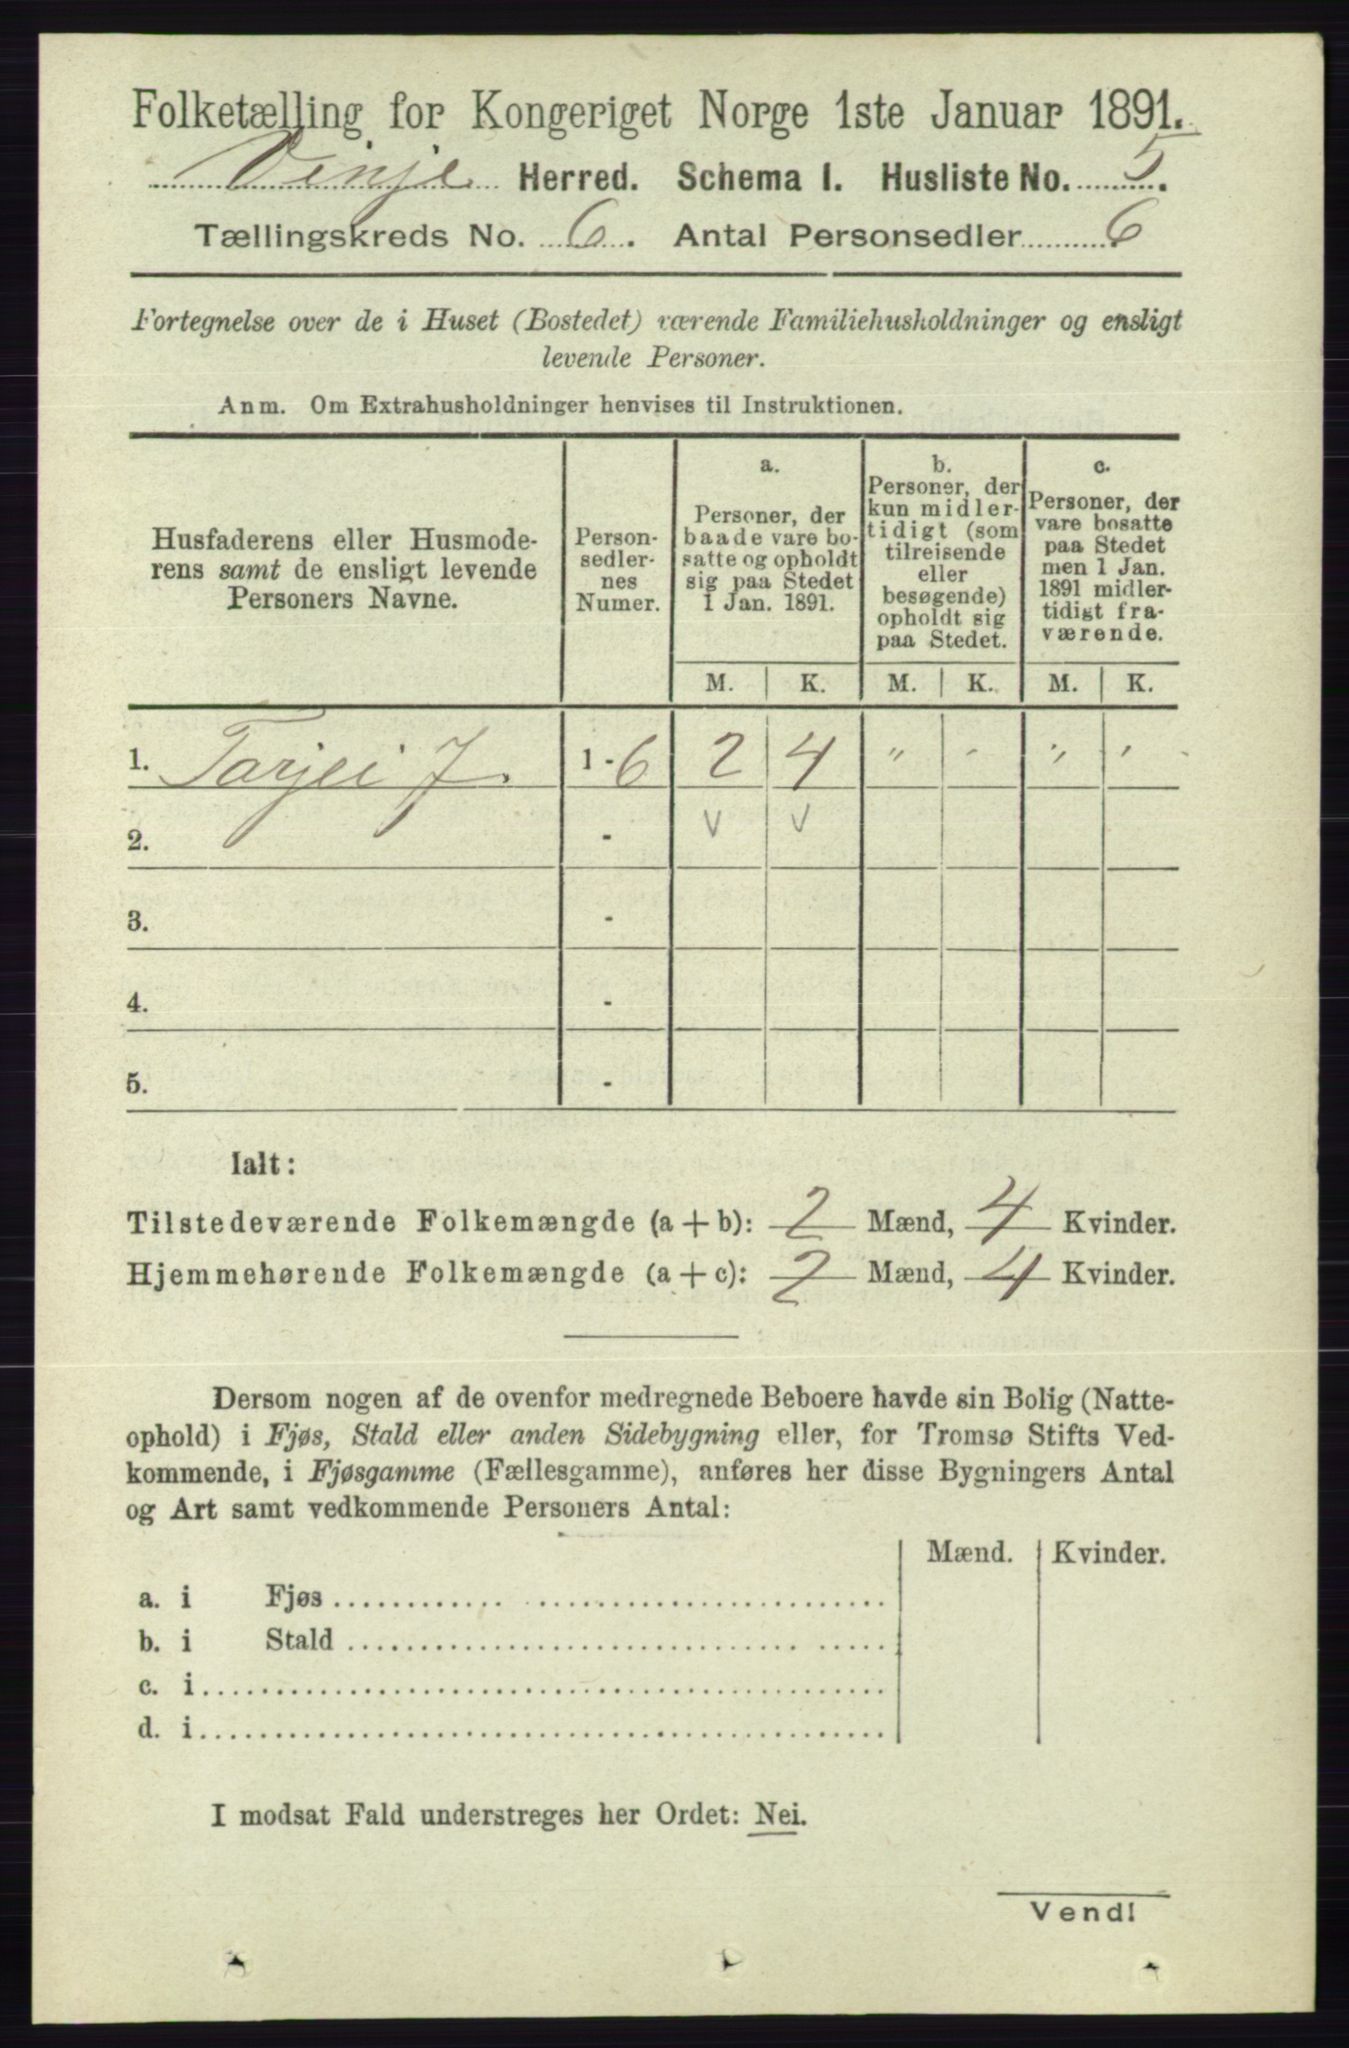 Folketælling for Kongeriget Norge 1ste Januar 1891.
Vinje Herred. Schema 1. Husliste No. 5.
Tællingskreds No. 6. Antal Personsedler 6
Fortegnelse over de i Huset (Bostedet) værende Familiehusholdninger og ensligt
levende Personer.
Anm. Om Extrahusholdninger henvises til Instruktionen.
Husfaderens eller Husmode-
rens samt de ensligt levende
Personers Navne.
Person-
sedler-
nes
Numer.
a.
Personer, der
baade vare bo-
satte og opholdt
sig paa Stedet
1 Jan. 1891.
b.
Personer, der
kun midler-
tidigt (som
tilreisende
eller
besøgende)
opholdt sig
paa Stedet.
c.
Personer, der
vare bosatte
paa Stedet
men 1 Jan.
1891 midler-
tidigt fra-
værende.
M. K. M. K. M. K.
1. Tarjei J. 1-6 2 4 " " " "
2. - v v
3. -
4. -
5. -
Ialt:
Tilstedeværende Folkemængde (a+b): 2 Mænd, 4 Kvinder.
Hjemmehørende Folkemængde (a+c): 2 Mænd, 4 Kvinder.
Dersom nogen af de ovenfor medregnede Beboere havde sin Bolig (Natte-
ophold) i Fjøs, Stald eller anden Sidebygning eller, for Tromsø Stifts Ved-
kommende, i Fjøsgamme (Fællesgamme), anføres her disse Bygningers Antal
og Art samt vedkommende Personers Antal:
Mænd. Kvinder.
a. i Fjøs
b. i Stald
c. i
d. i
I modsat Fald understreges her Ordet: Nei.
Vend!